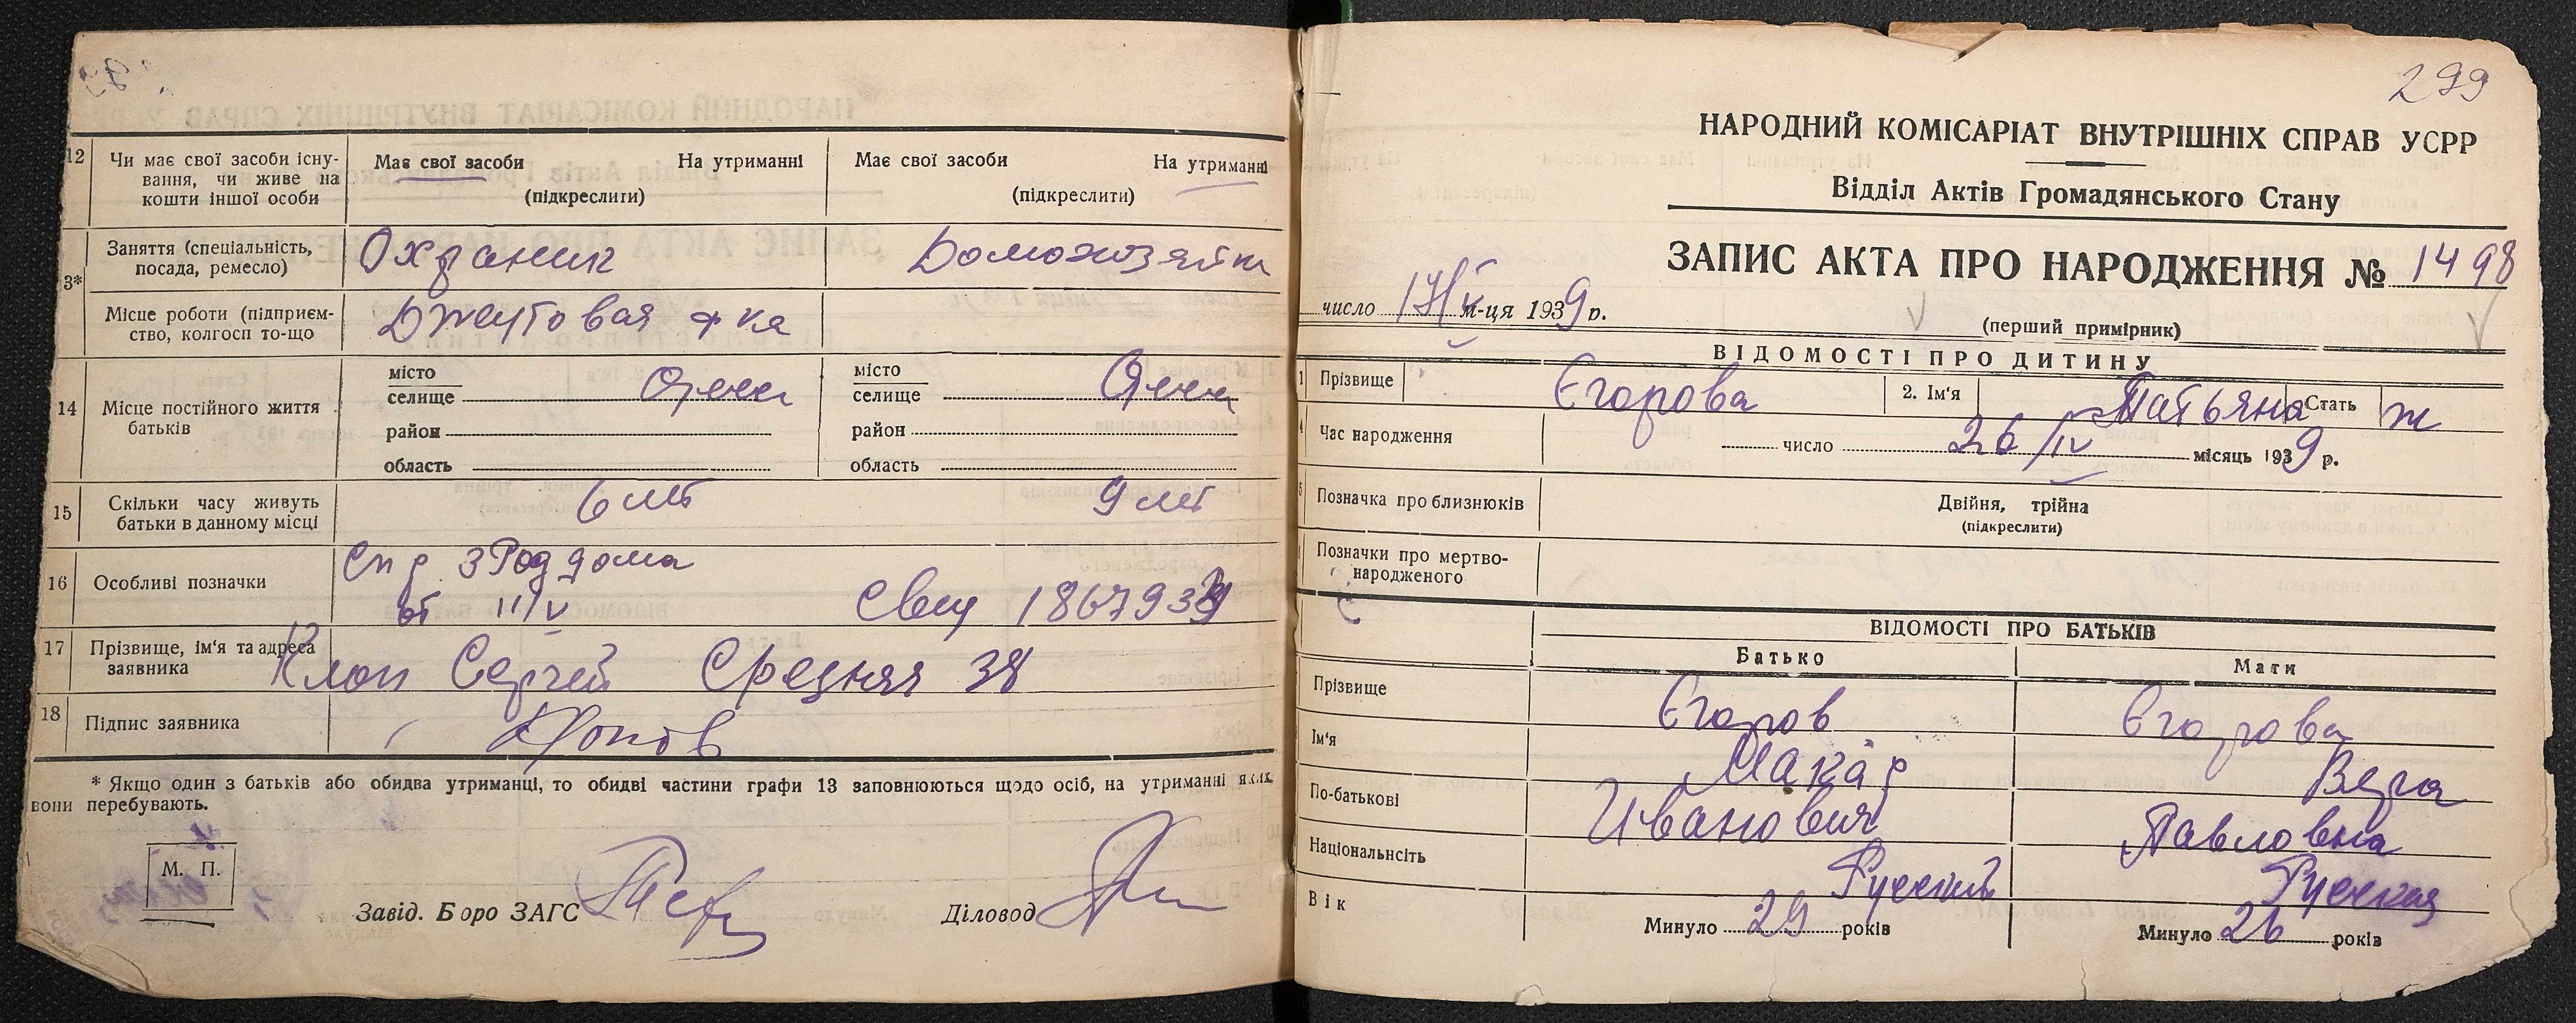 12 Чи має свої засоби існування, чи живе на кошти іншої особи
Має свої засоби На утриманні
(підкреслити)
Має свої засоби На утриманні
(підкреслити)
3* Заняття (спеціальність, посада, ремесло)
Охраник
Домохозяйка
Місце роботи (підприємство, колгосп то-що
Джутовая ф-ка
14 Місце постійного життя батьків
місто
селище
район
область
місто
селище
район
область
15 Скільки часу живуть батьки в данному місці
6 лет
9 лет
16 Особливі позначки
Спр 3 Роддома
от 11/V
17 Прізвище, ім'я та адреса заявника
Клоп Сергей Средняя 38
18 Підпис заявника
* Якщо один з батьків або обидва утриманці, то обидві частини графи 13 заповнюються щодо осіб, на утриманні яких
вони перебувають.
М. П.
Завід. Боро ЗАГС
Діловод
299
НАРОДНИЙ КОМІСАРІАТ ВНУТРІШНІХ СПРАВ УСРР
Відділ Актів Громадянського Стану
ЗАПИС АКТА ПРО НАРОДЖЕННЯ № 1498
число 17/V м-ця 1939 р.
(перший примірник)
ВІДОМОСТІ ПРО ДИТИНУ
1 Прізвище Єгорова 2. Ім'я Татьяна Стать ж
4 Час народження число 26/IV місяць 1939 р.
5 Позначка про близнюків Двійня, трійна
(підкреслити)
Позначки про мертво-
народженого
ВІДОМОСТІ ПРО БАТЬКІВ
Батько Мати
Прізвище Єгоров Єгорова
Ім'я Макар Вера
По-батькові Иванович Павловна
Національнсіть Русский Русская
Вік Минуло 29 років Минуло 26 років